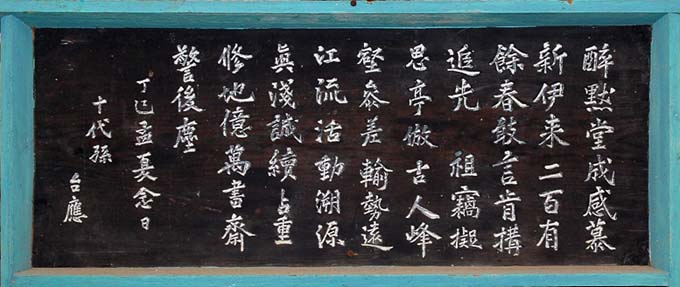 醉默堂成感慕
新伊来二百有
餘春敢言肯搆
追先 祖竊擬
思亭倣古人峰
壑叅差輸勢遠
江流活動溯源
眞淺誠續占重
修地億萬書齋
警後塵
丁巳孟夏念日
十代孫 台應